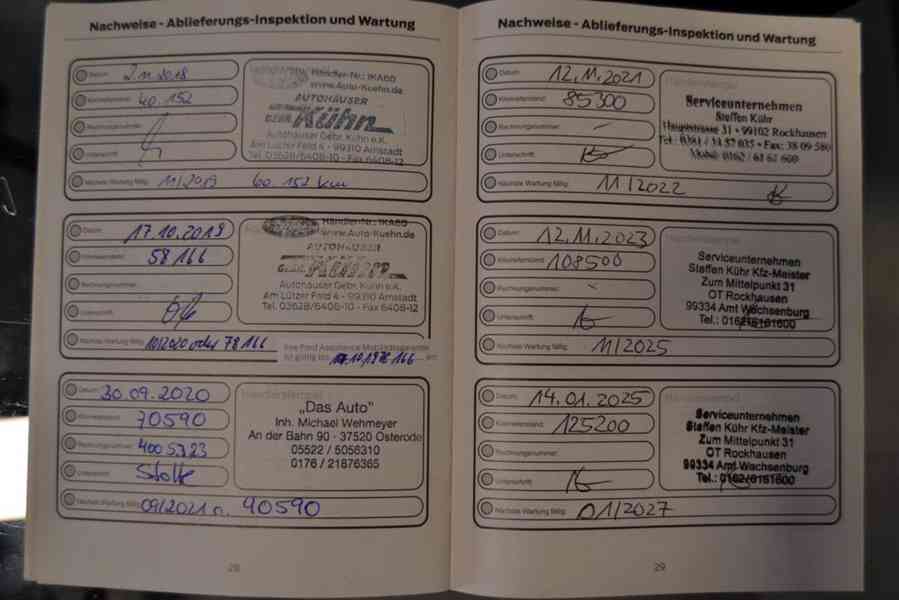 Nachweise - Ablieferungs-Inspektion und Wartung
Datum: 2.11.2018
Kilometerstand: 40.152
Rechnungsnummer:
Unterschrift:
Nächste Wartung fällig: 11/2019 60.152 km
Händler-Nr.: 1KA60
www.Auto-Kuehn.de
AUTOHÄUSER
GEBR. Kühn
Autohäuser Gebr. Kühn e.K.
Am Lützer Feld 4 - 99310 Arnstadt
Tel. 03628/6408-10 - Fax 6408-12
Datum: 17.10.2019
Kilometerstand: 58166
Rechnungsnummer:
Unterschrift:
Nächste Wartung fällig: 10/2020 oder 78166
Ihre Ford Assistance Mobilitätsgarantie
ist gültig bis
Händler-Nr.: 1KA60
www.Auto-Kuehn.de
AUTOHÄUSER
GEBR.
Autohäuser Gebr. Kühn e.K.
Am Lützer Feld 4 - 99310 Arnstadt
Tel. 03628/6408-10 - Fax 6408-12
Datum: 30.09.2020
Kilometerstand: 70590
Rechnungsnummer: 4005723
Unterschrift:
Nächste Wartung fällig: 09/2021 o. 90590
Händlerstempel
„Das Auto"
Inh. Michael Wehmeyer
An der Bahn 90 - 37520 Osterode
05522 / 5056310
0176 / 21876365
28
Nachweise - Ablieferungs-Inspektion und Wartung
Datum: 12.11.2021
Kilometerstand: 85300
Rechnungsnummer: -
Unterschrift:
Nächste Wartung fällig: 11/2022
Serviceunternehmen
Steffen Kühr
Hauptstrasse 31 • 99102 Rockhausen
Mobil: 0162 / 61 61 600
Datum: 12.11.2023
Kilometerstand: 108500
Rechnungsnummer: -
Unterschrift:
Nächste Wartung fällig: 11/2025
Serviceunternehmen
Steffen Kühr Kfz-Meister
Zum Mittelpunkt 31
OT Rockhausen
99334 Amt Wachsenburg
Tel.: 0162/6161600
Datum: 14.01.2025
Kilometerstand: 125200
Rechnungsnummer:
Unterschrift:
Nächste Wartung fällig: 01/2027
Serviceunternehmen
Steffen Kühr Kfz-Meister
Zum Mittelpunkt 31
OT Rockhausen
99334 Amt Wachsenburg
Tel.: 0162/6161600
29